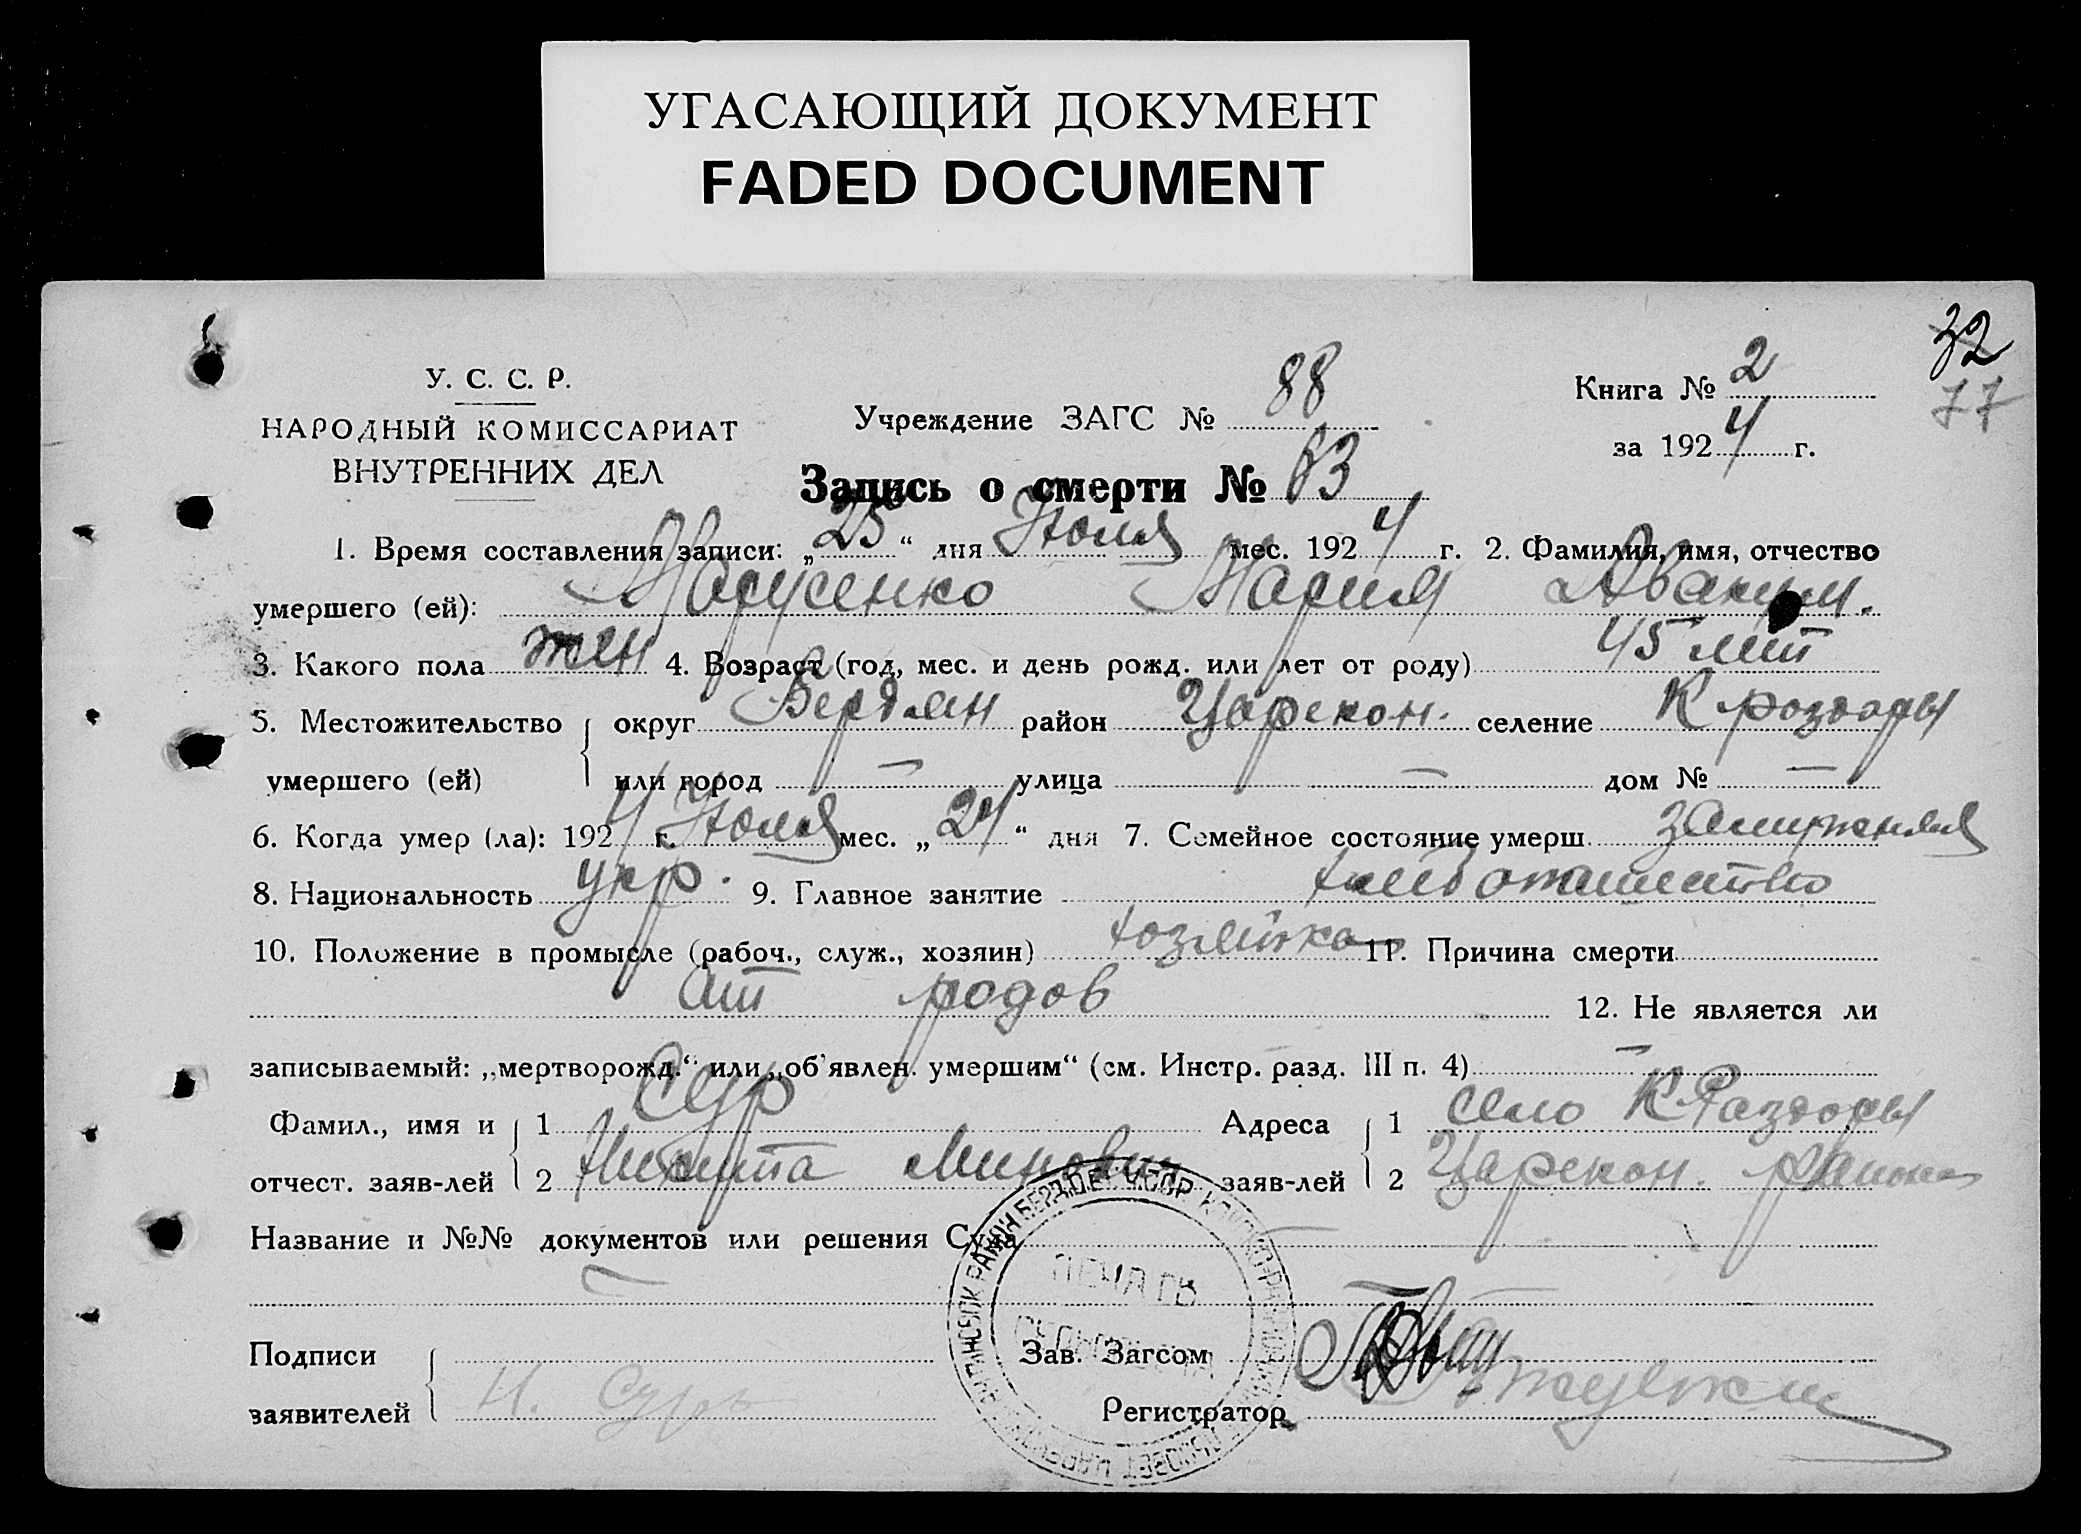 УГАСАЮЩИЙ ДОКУМЕНТ
FADED DOCUMENT
32
77
У. С. С. Р.
НАРОДНЫЙ КОМИССАРИАТ
ВНУТРЕННИХ ДЕЛ
Учреждение ЗАГС № 88
Книга № 2
за 1924 г.
Запись о смерти № 83
1. Время составления записи: „25“ дня Июля мес. 1924 г. 2. Фамилия, имя, отчество
умершего (ей): Марусенко Мария Авакум.
3. Какого пола жен 4. Возраст (год, мес. и день рожд. или лет от роду) 45 лет
5. Местожительство округ Бердян район Царекон. селение К роздоры
умершего (ей) или город — улица — дом № —
6. Когда умер (ла): 1924 г. Июля мес. „24“ дня 7. Семейное состояние умерш. замужняя
8. Национальность укр. 9. Главное занятие хлебопашество
10. Положение в промысле (рабоч., служ., хозяин) хозяйка 11. Причина смерти
от родов 12. Не является ли
записываемый: „мертворожд.“ или „об'явлен. умершим“ (см. Инстр. разд. III п. 4) —
Фамил., имя и 1 Сур Адреса 1 село К Раздоры
отчест. заяв-лей 2 Никита Минович заяв-лей 2 Царекон. района
Название и №№ документов или решения Суда —
—
Подписи Зав. Загсом
заявителей Н. Сур Регистратор
ПЕЧАТЬ